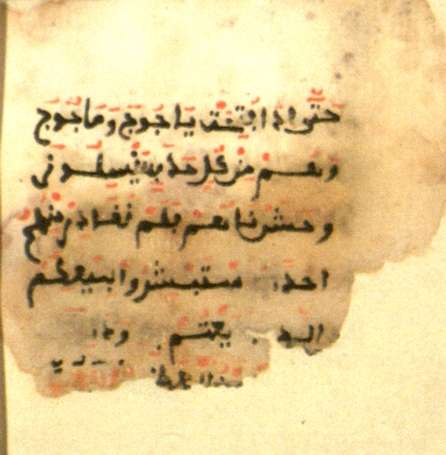 حتى اذا فتحت ياجوج وماجوج
وهم من كل حدب ينسلون
وحشرناهم فلم نغادر منهم
احدا فاستبشروا ببيعكم